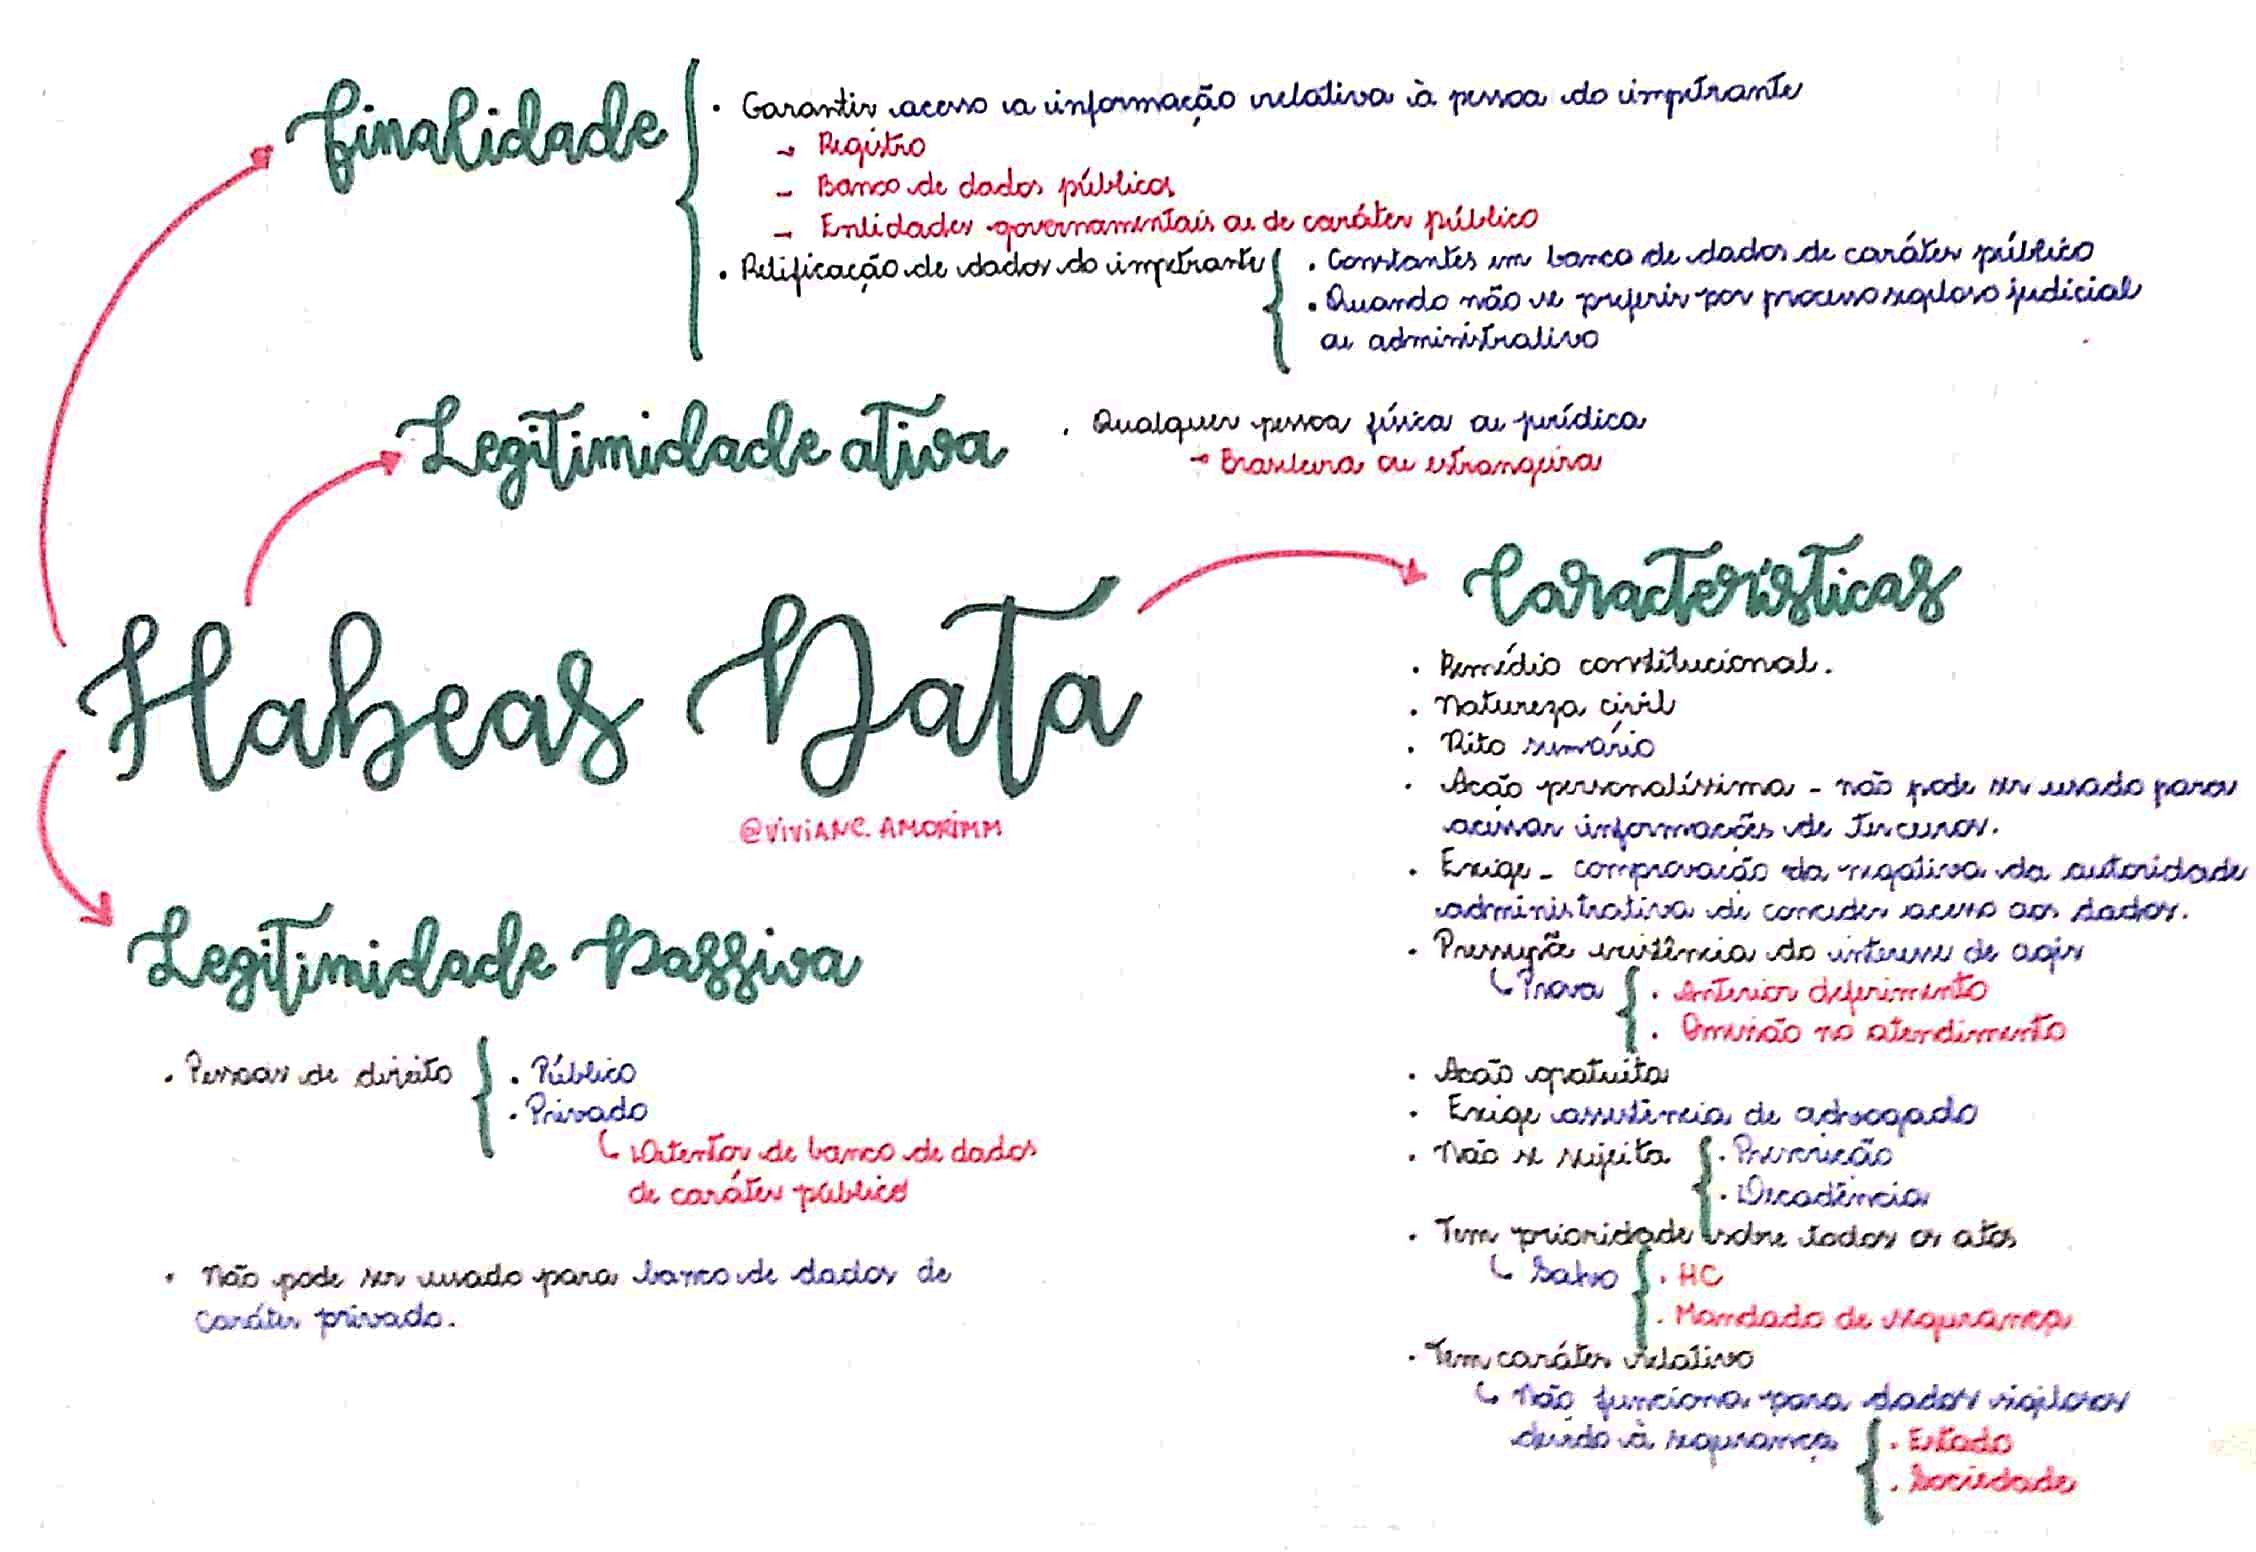 Finalidade
• Garantir acesso a informação relativa à pessoa do impetrante
→ Registro
→ Banco de dados públicos
→ Entidades governamentais ou de caráter público
• Retificação de dados do impetrante
• Constantes em banco de dados de caráter público
• Quando não se preferir por processo sigiloso judicial
ou administrativo
Legitimidade ativa
• Qualquer pessoa física ou jurídica
→ Brasileira ou estrangeira
Habeas Data
@viviane.amorimm
Características
• Remédio constitucional.
• Natureza civil
• Rito sumário
• Acão personalíssima - não pode ser usado para
acessar informações de terceiros.
• Exige - comprovação da negativa da autoridade
administrativa de conceder acesso aos dados.
• Pressupõe existência do interesse de agir
Prova
• Anterior deferimento
• Omissão no atendimento
• Acão gratuita
• Exige assistência de advogado
• Não se sujeita
• Prescrição
• Decadência
• Tem prioridade sobre todos os atos
Salvo
• HC
• Mandado de segurança
• Tem caráter relativo
Não funciona para dados sigilosos
devido à segurança
• Estado
• Sociedade
Legitimidade Passiva
• Pessoas de direito
• Público
• Privado
Detentor de banco de dados
de caráter público
• Não pode ser usado para banco de dados de
caráter privado.